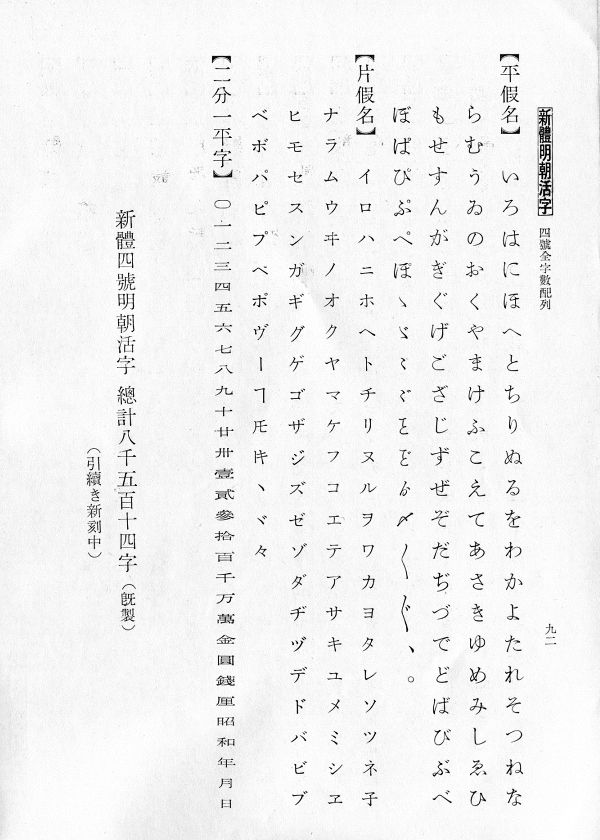 新體明朝活字 四號全字數配列 九二
【平假名】 いろはにほへとちりぬるをわかよたれそつねな
らむうゐのおくやまけふこえてあさきゆめみしゑひ
もせすんがぎぐげござじずぜぞだぢづでどばびぶべ
ぼぱぴぷぺぽゝゞ〆〱〲、。
【片假名】 イロハニホヘトチリヌルヲワカヨタレソツネ子
ナラムウヰノオクヤマケフコエテアサキユメミシヱ
ヒモセスンガギグゲゴザジズゼゾダヂヅデドバビブ
ベボパピプペポヴーヿ𪜈ヽヾ々
【二分一平字】 〇一二三四五六七八九十廿卅壹貳參拾百千万萬金圓錢厘昭和年月日
新體四號明朝活字 總計八千五百十四字（旣製）
（引續き新刻中）